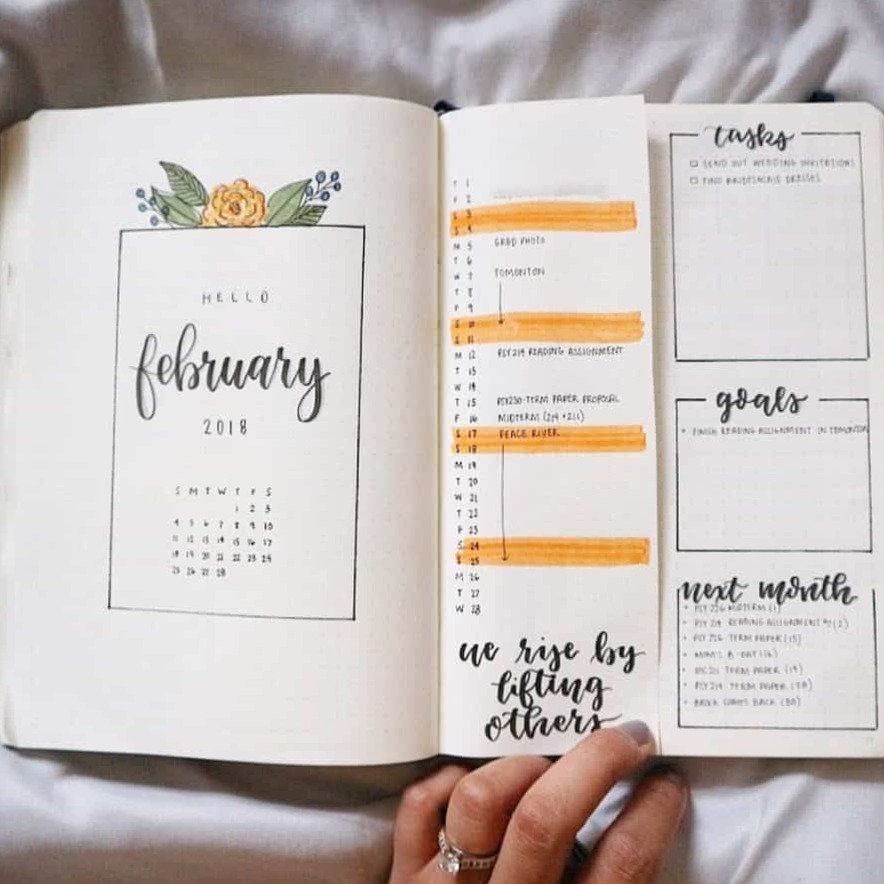 HELLO
february
2018
S M T W T F S
1 2 3
4 5 6 7 8 9 10
11 12 13 14 15 16 17
18 19 20 21 22 23 24
25 26 27 28
T 1
F 2
S 3
S 4
M 5 GRAD PHOTO
T 6
W 7 TOMONTON
T 8
F 9
S 10
S 11
M 12 PSY219 READING ASSIGNMENT
T 13
W 14
T 15 PSY250-TERM PAPER PROPOSAL
F 16 MIDTERM (219 + 211)
S 17 PEACE RIVER
S 18
M 19
T 20
W 21
T 22
F 23
S 24
S 25
M 26
T 27
W 28
we rise by
lifting
others
tasks
SEND OUT WEDDING INVITATIONS
FIND BRIDESMAIDS DRESSES
goals
FINISH READING ASSIGNMENT IN TOMONTON
next month
MIDTERM (1)
READING ASSIGNMENT
TERM PAPER (15)
MOM'S B-DAY (16)
TERM PAPER (19)
TERM PAPER
COMES BACK (30)